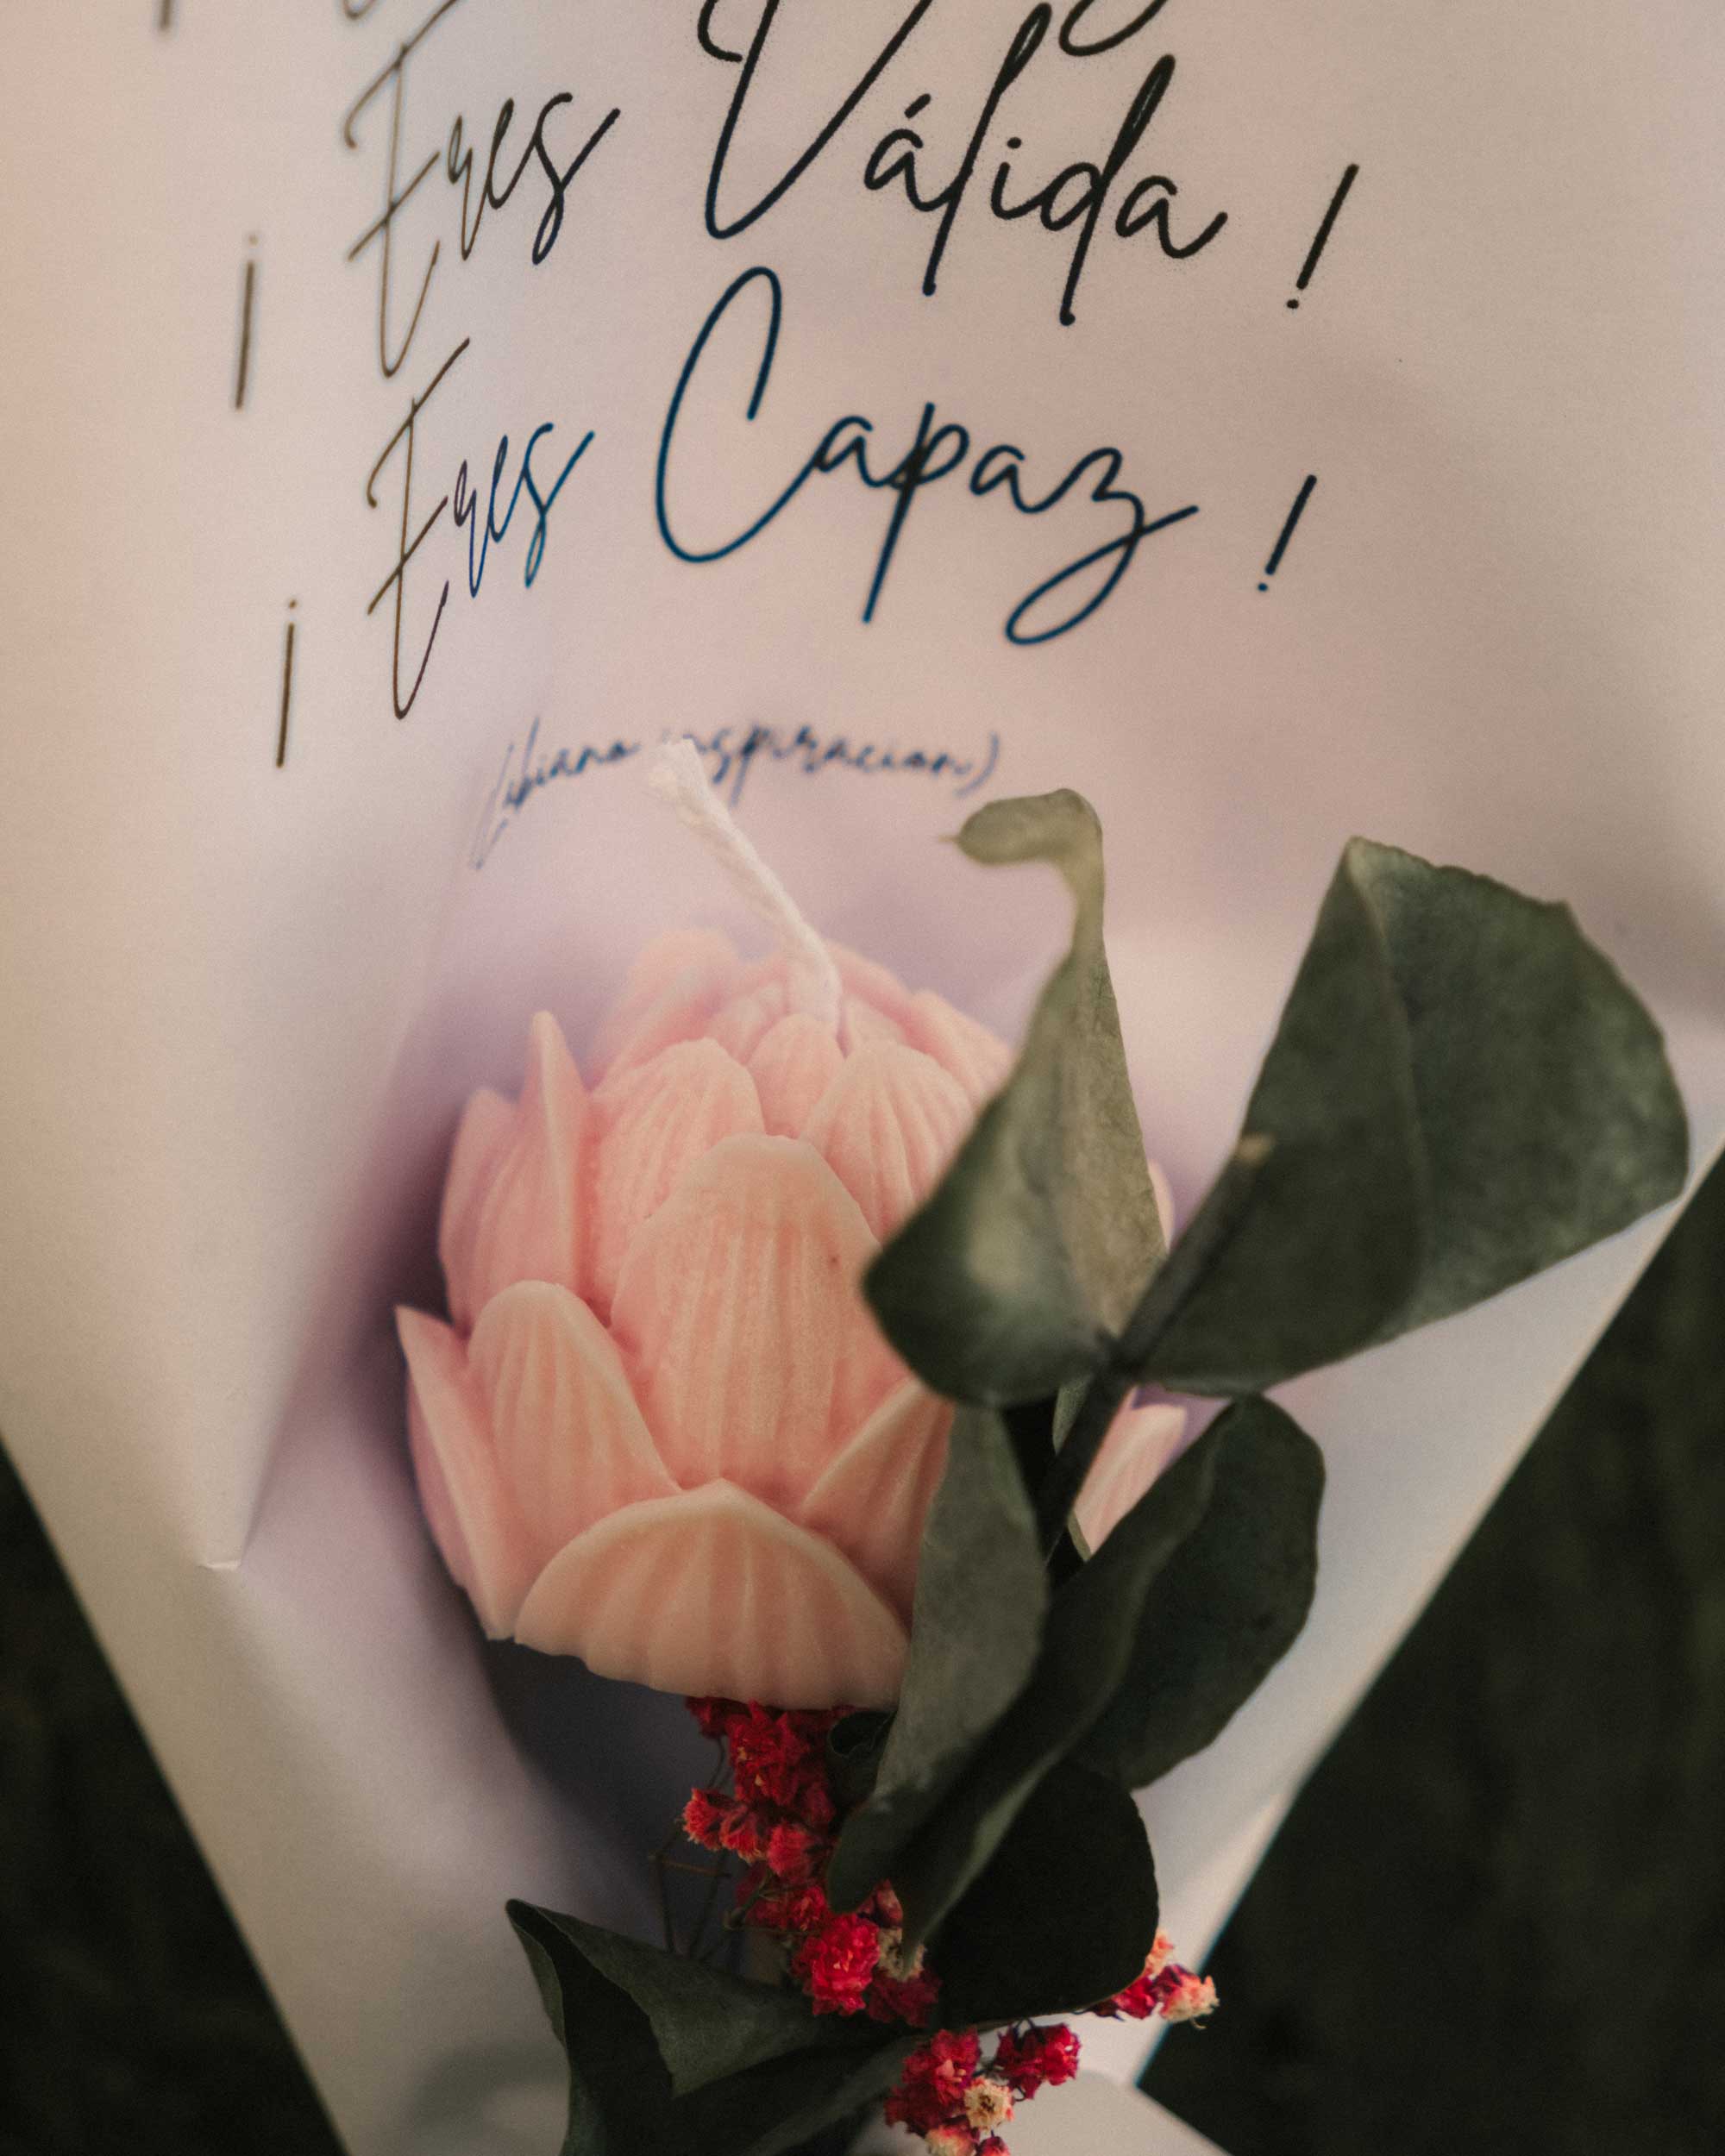 ¡ Eres Válida !
¡ Eres Capaz !
inspiracion)